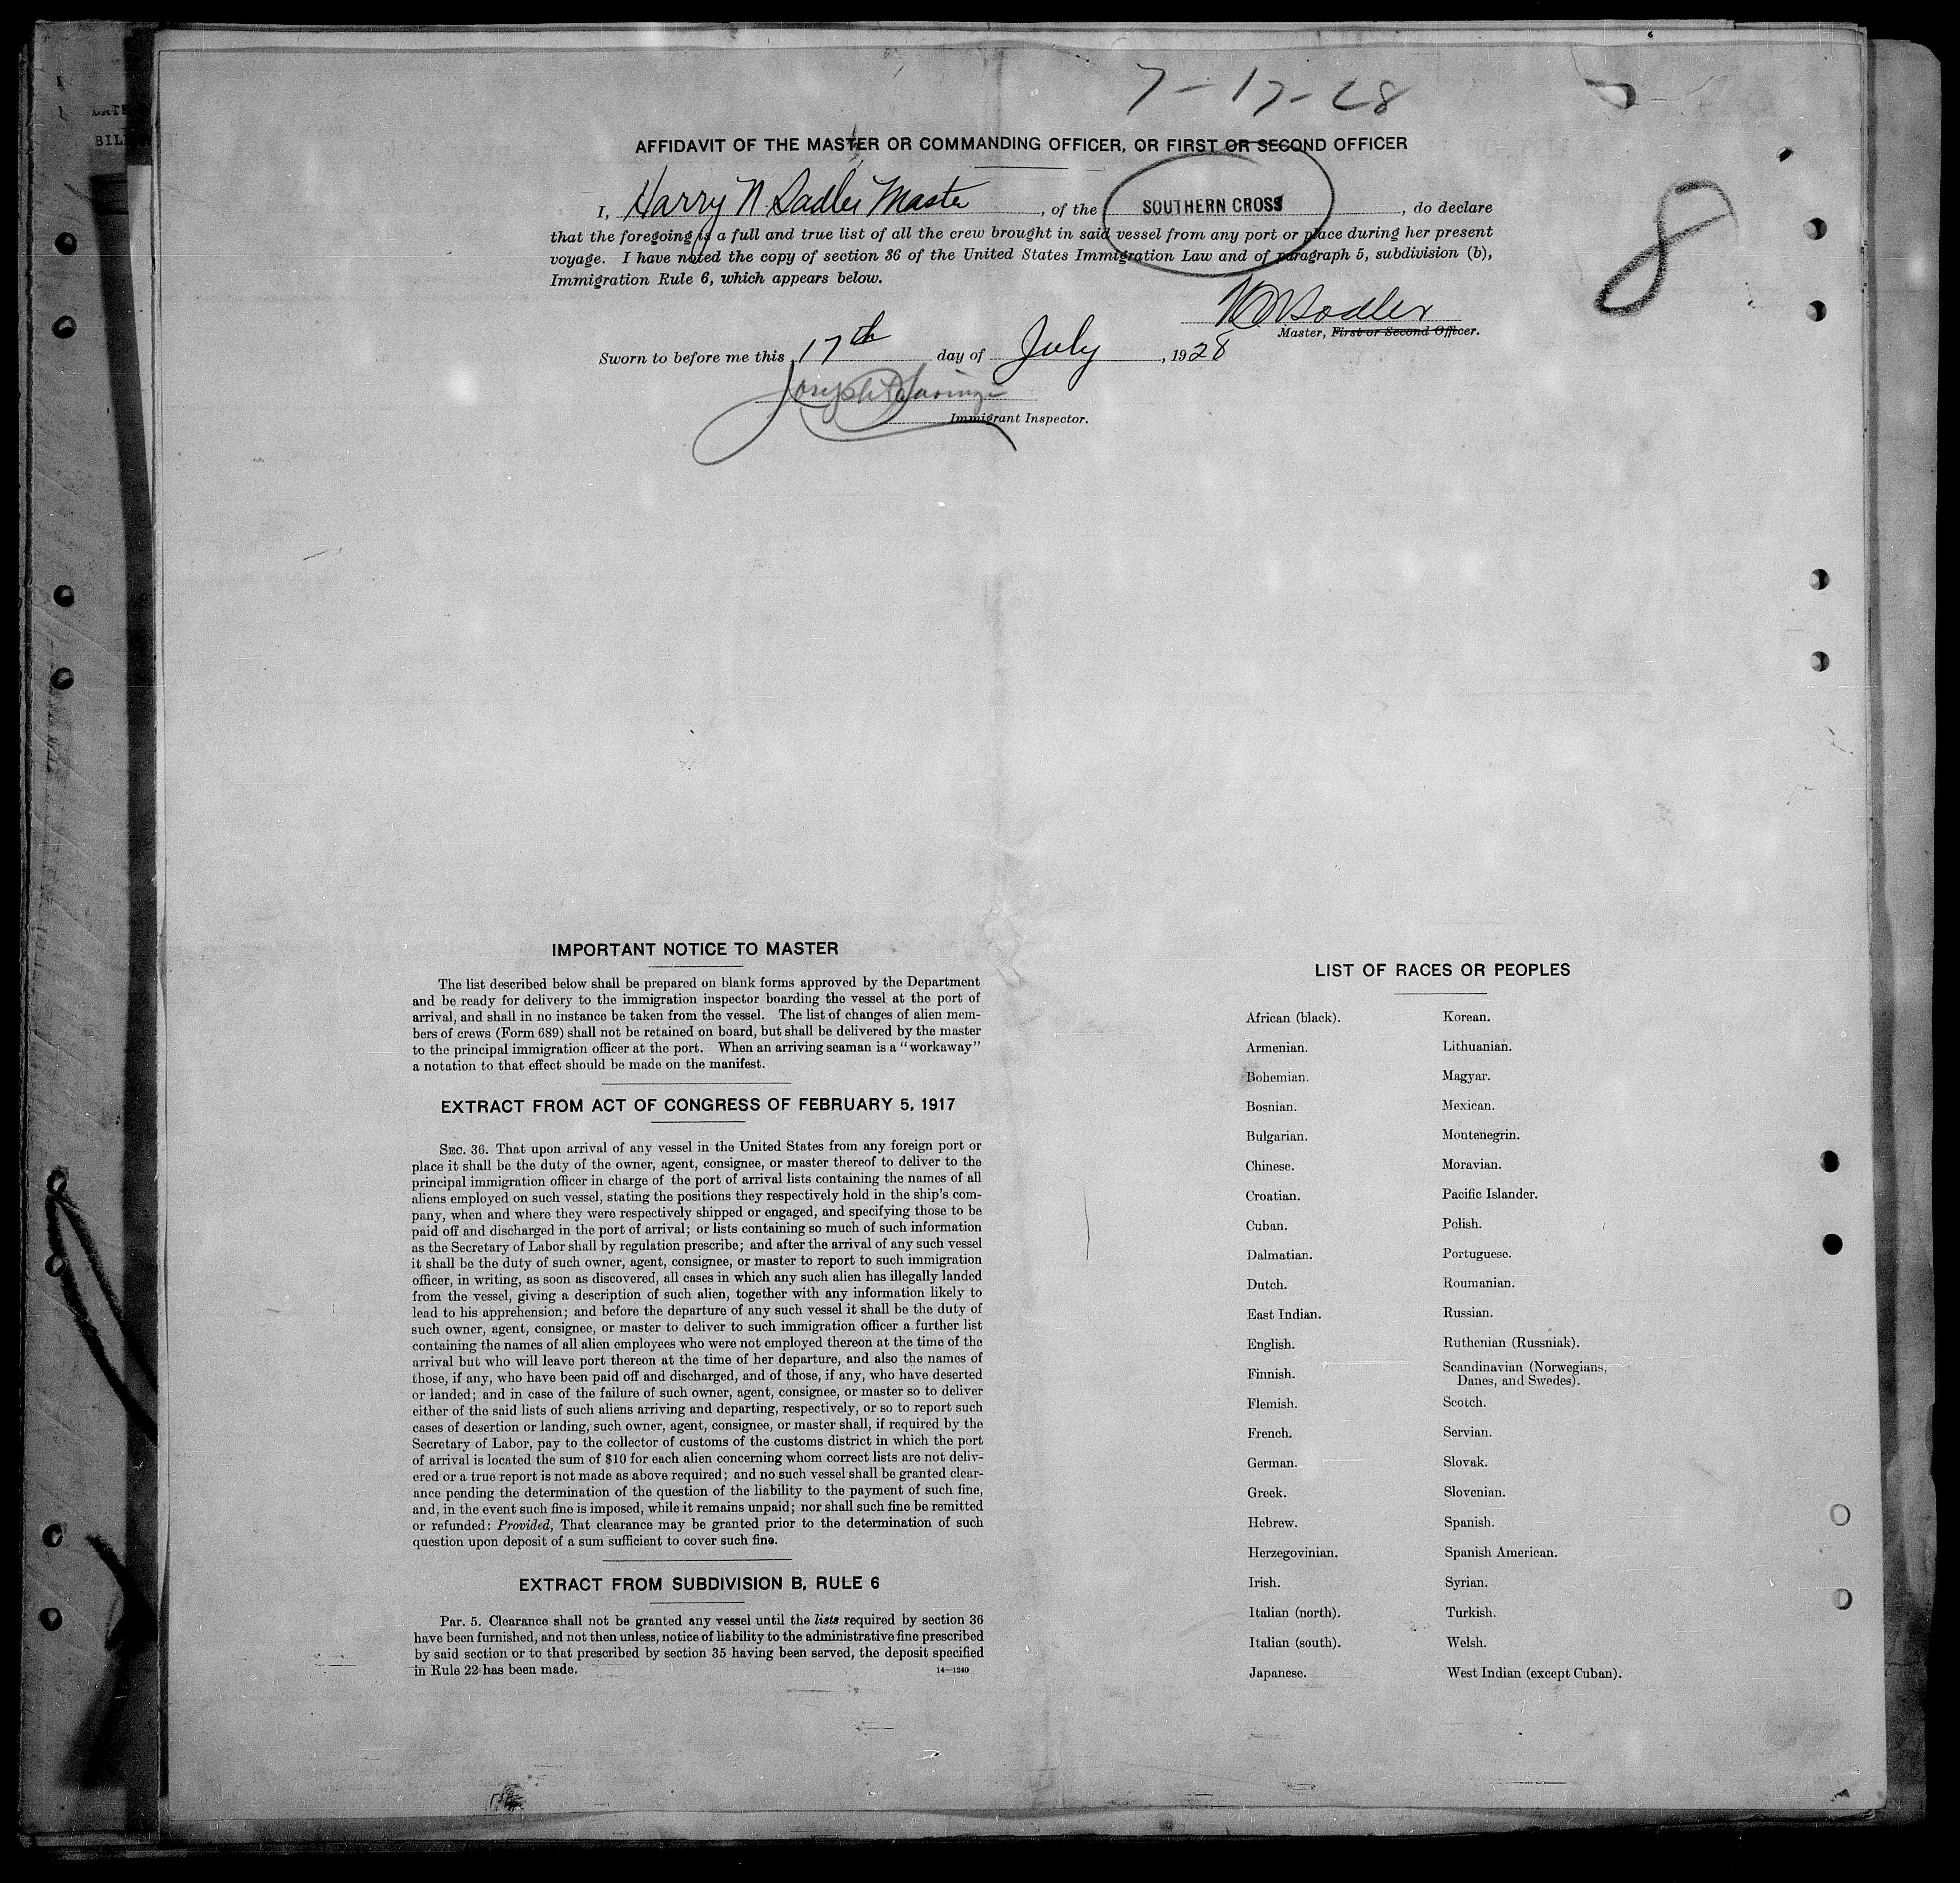 7-17-28
AFFIDAVIT OF THE MASTER OR COMMANDING OFFICER, OR FIRST OR SECOND OFFICER
I, Harry N. Sadler Master, of the SOUTHERN CROSS, do declare
that the foregoing is a full and true list of all the crew brought in said vessel from any port or place during her present
voyage. I have noted the copy of section 36 of the United States Immigration Law and of paragraph 5, subdivision (b),
Immigration Rule 6, which appears below.
8
HN Sadler
Master, First or Second Officer.
Sworn to before me this 17th day of July, 1928
Joseph
Immigrant Inspector.
IMPORTANT NOTICE TO MASTER
The list described below shall be prepared on blank forms approved by the Department
and be ready for delivery to the immigration inspector boarding the vessel at the port of
arrival, and shall in no instance be taken from the vessel. The list of changes of alien mem-
bers of crews (Form 689) shall not be retained on board, but shall be delivered by the master
to the principal immigration officer at the port. When an arriving seaman is a "workaway"
a notation to that effect should be made on the manifest.
EXTRACT FROM ACT OF CONGRESS OF FEBRUARY 5, 1917
SEC. 36. That upon arrival of any vessel in the United States from any foreign port or
place it shall be the duty of the owner, agent, consignee, or master thereof to deliver to the
principal immigration officer in charge of the port of arrival lists containing the names of all
aliens employed on such vessel, stating the positions they respectively hold in the ship's com-
pany, when and where they were respectively shipped or engaged, and specifying those to be
paid off and discharged in the port of arrival; or lists containing so much of such information
as the Secretary of Labor shall by regulation prescribe; and after the arrival of any such vessel
it shall be the duty of such owner, agent, consignee, or master to report to such immigration
officer, in writing, as soon as discovered, all cases in which any such alien has illegally landed
from the vessel, giving a description of such alien, together with any information likely to
lead to his apprehension; and before the departure of any such vessel it shall be the duty of
such owner, agent, consignee, or master to deliver to such immigration officer a further list
containing the names of all alien employees who were not employed thereon at the time of the
arrival but who will leave port thereon at the time of her departure, and also the names of
those, if any, who have been paid off and discharged, and of those, if any, who have deserted
or landed; and in case of the failure of such owner, agent, consignee, or master so to deliver
either of the said lists of such aliens arriving and departing, respectively, or so to report such
cases of desertion or landing, such owner, agent, consignee, or master shall, if required by the
Secretary of Labor, pay to the collector of customs of the customs district in which the port
of arrival is located the sum of $10 for each alien concerning whom correct lists are not deliv-
ered or a true report is not made as above required; and no such vessel shall be granted clear-
ance pending the determination of the question of the liability to the payment of such fine,
and, in the event such fine is imposed, while it remains unpaid; nor shall such fine be remitted
or refunded: Provided, That clearance may be granted prior to the determination of such
question upon deposit of a sum sufficient to cover such fine.
EXTRACT FROM SUBDIVISION B, RULE 6
Par. 5. Clearance shall not be granted any vessel until the lists required by section 36
have been furnished, and not then unless, notice of liability to the administrative fine prescribed
by said section or to that prescribed by section 35 having been served, the deposit specified
in Rule 22 has been made.
14—1240
LIST OF RACES OR PEOPLES
African (black).
Armenian.
Bohemian.
Bosnian.
Bulgarian.
Chinese.
Croatian.
Cuban.
Dalmatian.
Dutch.
East Indian.
English.
Finnish.
Flemish.
French.
German.
Greek.
Hebrew.
Herzegovinian.
Irish.
Italian (north).
Italian (south).
Japanese.
Korean.
Lithuanian.
Magyar.
Mexican.
Montenegrin.
Moravian.
Pacific Islander.
Polish.
Portuguese.
Roumanian.
Russian.
Ruthenian (Russniak).
Scandinavian (Norwegians,
Danes, and Swedes).
Scotch.
Servian.
Slovak.
Slovenian.
Spanish.
Spanish American.
Syrian.
Turkish.
Welsh.
West Indian (except Cuban).